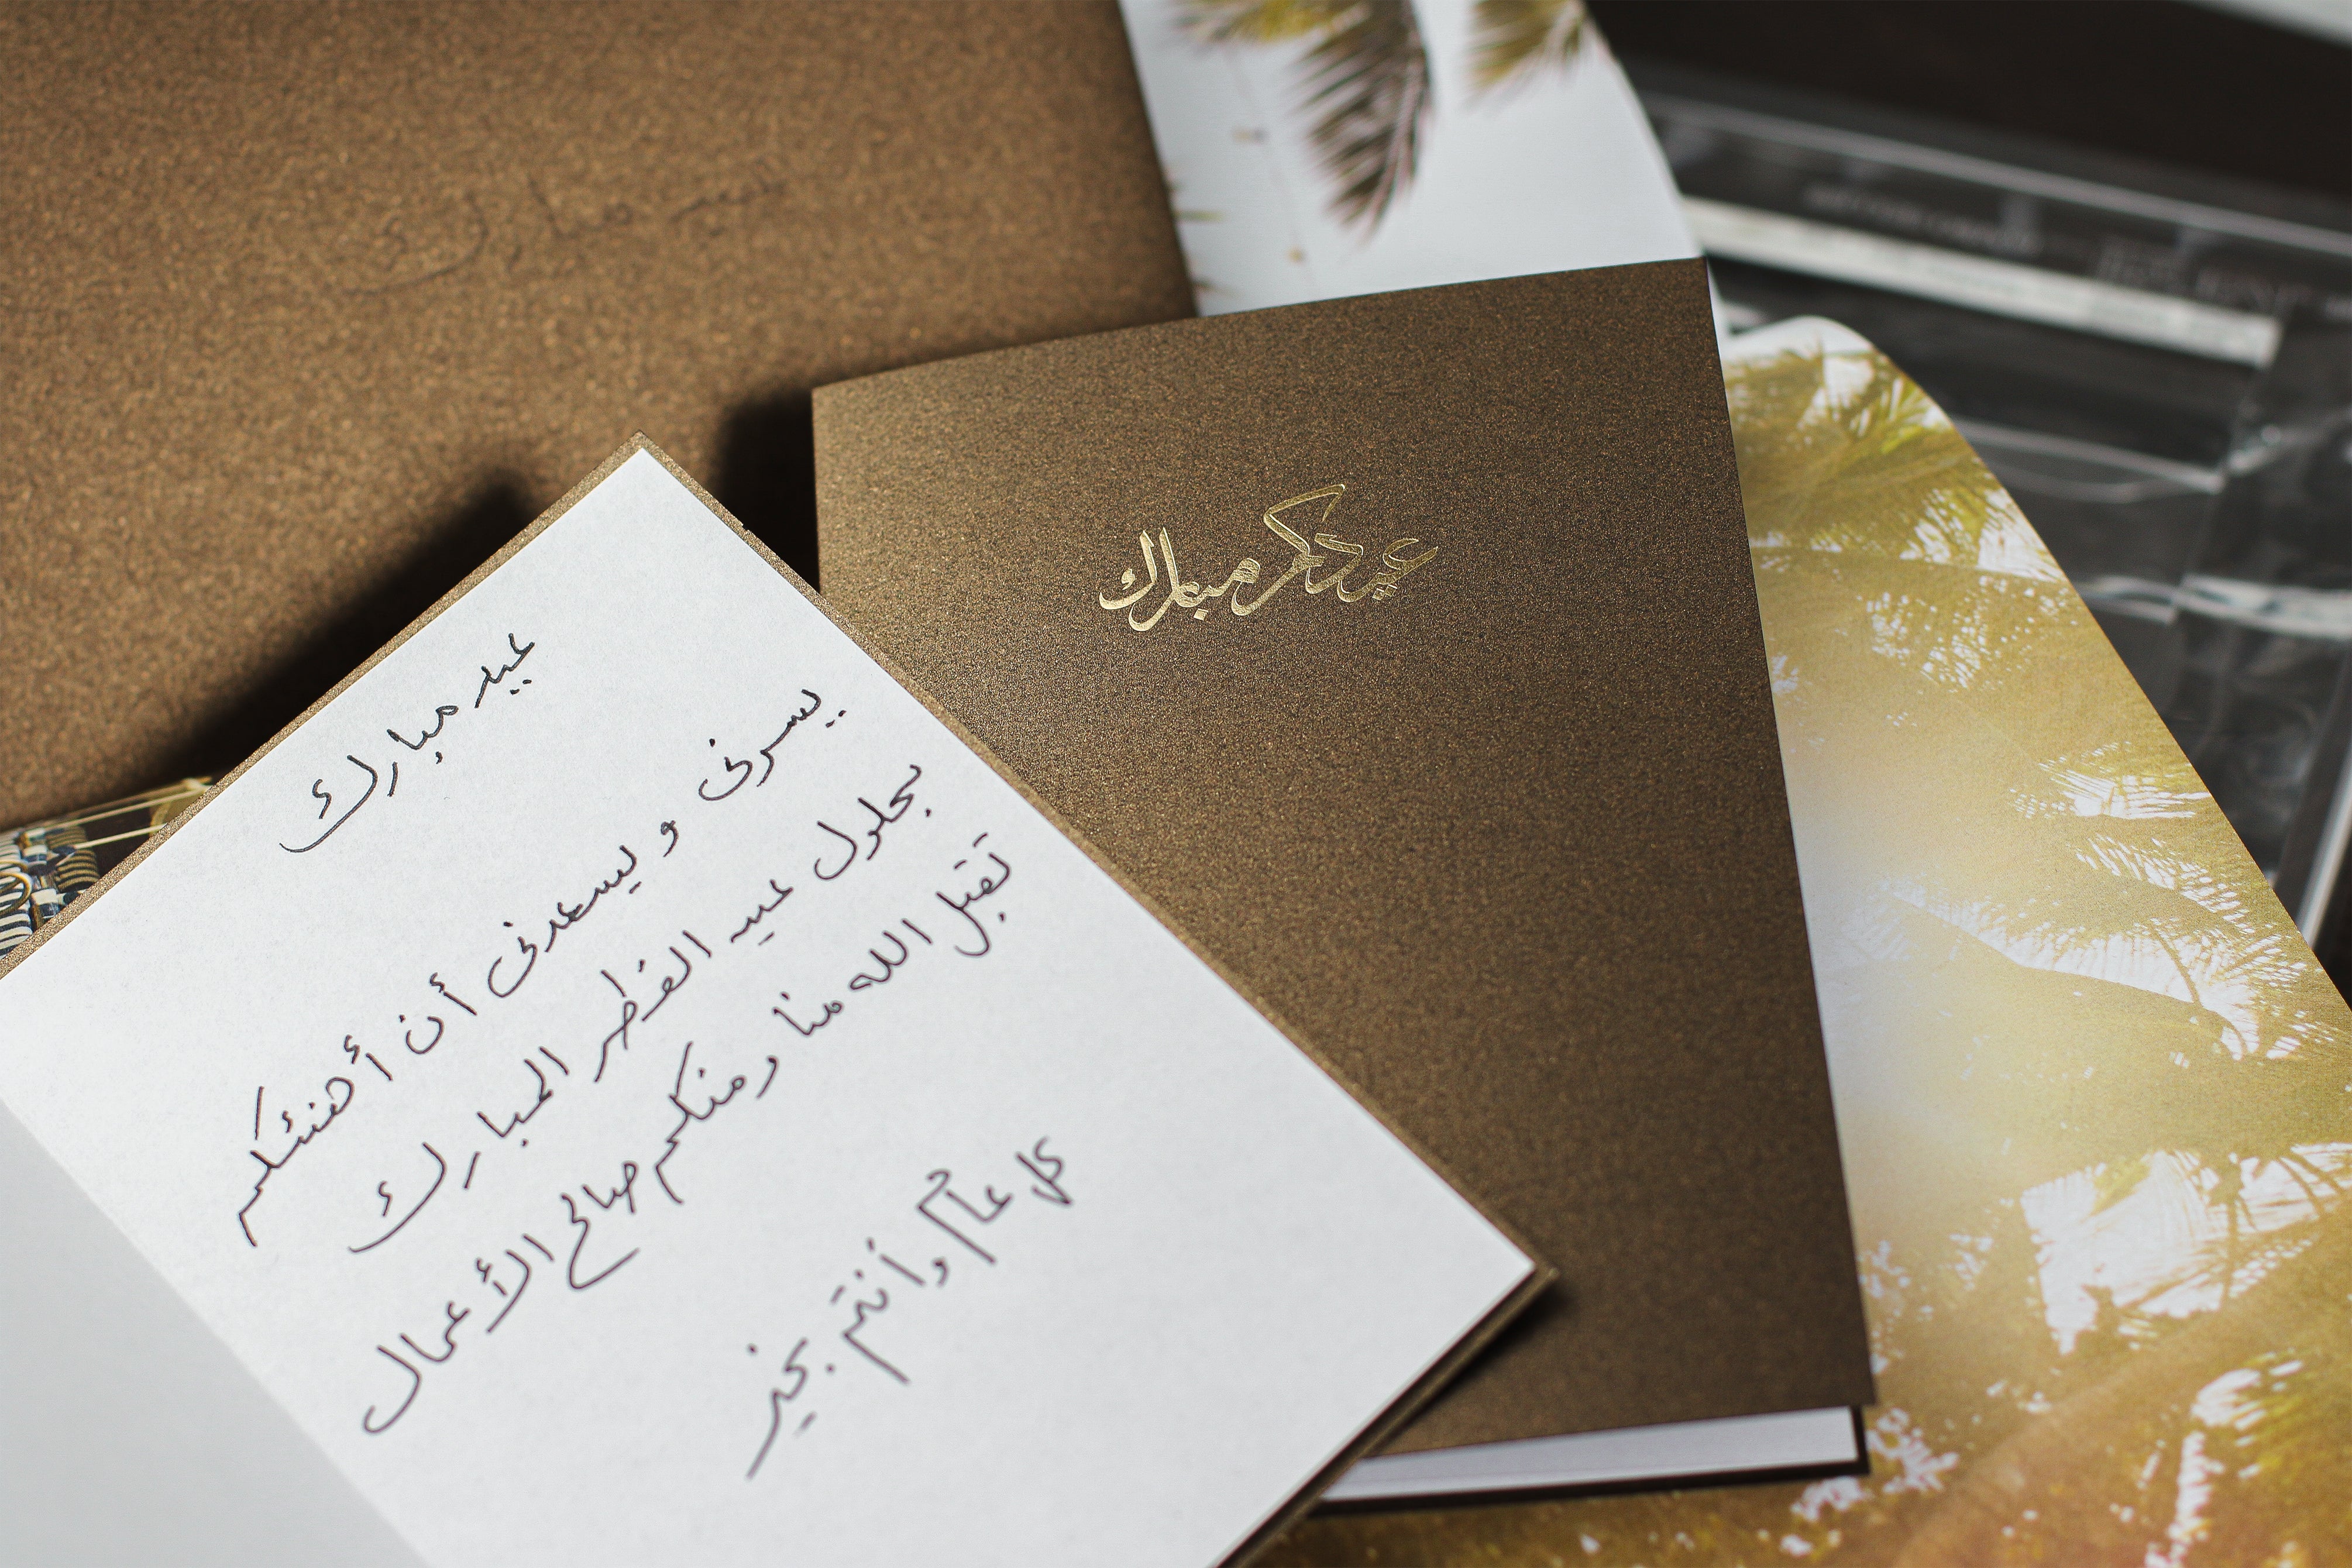 عيدكم مبارك
عيد مبارك
يسرنى و يسعدنى أن أهنئكم
بحلول عيد الفطر المبارك
تقبل الله منا ومنكم صالح الأعمال
كل عام وأنتم بخير